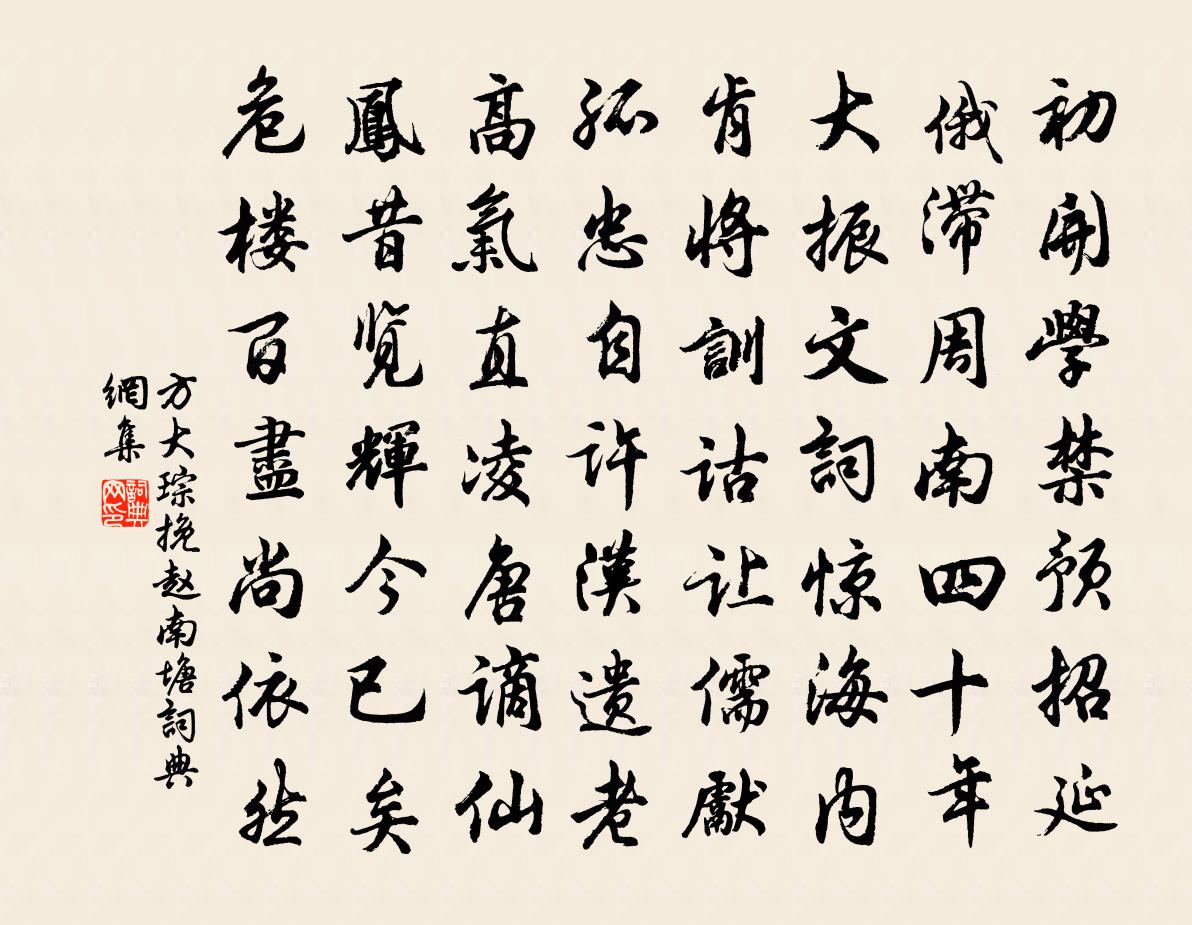 初開學禁預招延
俄滯周南四十年
大振文詞惊海内
肯將訓诂让儒獻
孤忠自许漢遗老
高氣直凌唐谪仙
鳳昔览輝今已矣
危楼百盡尚依然
方大琮挽赵南塘詞典
網集
詞典網印